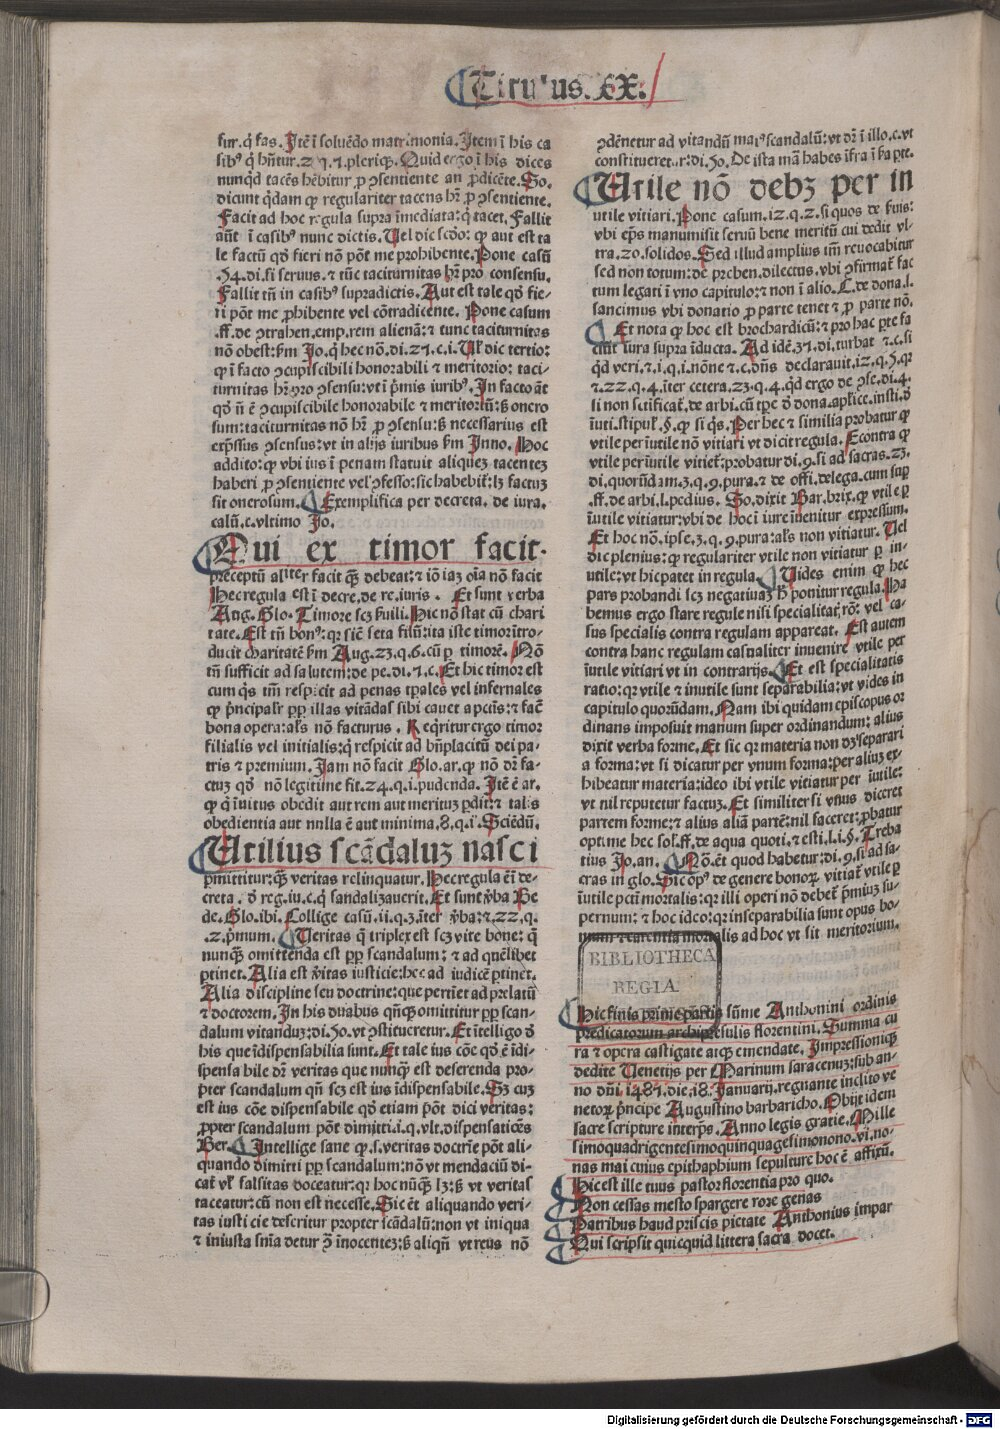 Titulus. XX.
fur. q̇ fas. Itē ī soluēdo matrimonia. Item ī his ca
sibꝰ q̇ hñtur. 2 q. 7. plerique. Quid ergo ī his dices
nunqd tacēs hēbitur ꝓ ꝯsentiente an ꝓ dicēte. So.
dicunt qdam ꝙ regulariter tacens hr̄ ꝓ ꝯsentiente.
Facit ad hoc regula supra īmediata: q̇ tacet. Fallit
aūt ī casibꝰ nunc dictis. Uel dic scd̄o: ꝙ aut est ta
le factū qd̄ fieri nō pōt me prohibente. Pone casū
.54. di. si seruus. ⁊ tūc taciturnitas hr̄ pro consensu.
Fallit tn̄ in casibꝰ supradictis. Aut est tale qd̄ fie-
ri pōt me ꝓhibente vel cōtradicente. Pone casum
.ff. de ꝯtrahen. emp. rem alienā: ⁊ tunc taciturnitas
nō obest: fm Jo. q̇ hec nō. di. 27. c. i. Ul' dic tertio:
ꝙ ī facto ꝯcupiscibili honorabili ⁊ meritorio: taci-
turnitas hr̄ pro ꝯsensu: vt ī pͥmis iuribꝰ. In facto āt
qd̄ n̄ ē ꝯcupiscibile honorabile ⁊ meritoriū: ß onero
sum: taciturnitas nō hr̄ ꝓ ꝯsensu: ß necessarius est
exp̄ssus ꝯsensus: vt in alijs iuribus fm Inno. Hoc
addito: ꝙ vbi ius ī penam statuit aliquez tacentez
haberi ꝓ ꝯsentiente vel ꝯfesso: sic habebit̄: lꝫ factuz
sit onerosum. Exemplifica per decreta. de iura.
calū. c. vltimo Jo.
Qui ex timor facit.
preceptū aliter facit q̄ꝫ debeat: ⁊ iō iaꝫ oīa nō facit
Hec regula est ī decre. de re. iuris. Et sunt verba
Aug. Glo. Timore scꝫ ßuili. Hic nō stat cū chari
tate. Est tn̄ bonꝰ: qr siē seta filū: ita iste timor ītro-
ducit charitatē fm Aug. 23. q. 6. cū ꝑ timorē. Nō
tn̄ sufficit ad salutem: de pe. di. 1. c. Et hic timor est
cum q̇s tm̄ respicit ad penas tꝑales vel infernales
ꝙ pͥncipalr̄ ꝓp illas vitādas sibi cauet a pctis: ⁊ fac̄
bona opera: als̄ nō facturus. Reqrītur ergo timor
filialis vel initialis: q̇ respicit ad bn̄placitū dei pa-
tris ⁊ premium. Jam nō facit Glo. ar. ꝙ nō dr̄ fa-
ctuꝫ qd̄ nō legitime fit. 24. q. i. pudenda. Itē ē ar.
ꝙ q̇ īuitus obedit aut rem aut merituꝫ ꝑdit: ⁊ talis
obedientia aut nulla ē aut minima. 8. q. i. Sciēdū.
Utilius scādaluꝫ nasci
ꝑmittitur: q̄ꝫ veritas relinquatur. Hec regula ē ī de-
creta. d̄ reg. iu. c. q̇ sandalizauerit. Et sunt v̄ba Be
de. Glo. ibi. Collige casū. ii. q. 3. īter v̄ba: ⁊. 22. q.
.2. pͥmum. Ueritas q̄ triplex est scꝫ vite bone: q̄
nunq̄ꝫ omittenda est ꝓp scandalum: ⁊ ad quēlibet
ꝑtinet. Alia est v̄itas iusticie: hec ad iudicē ꝑtinet.
Alia discipline seu doctrine: que pertiet ad prelatū
⁊ doctorem. In his duabus qn̄q̄ꝫ omittitur ꝓp scan-
dalum vitanduꝫ: di. 50. vt ꝯstitueretur. Et ītelligo d̄
his que īdispensabilia sunt. Et tale ius cōe qd̄ ē īdi-
spensa bile dr̄ veritas que nunq̄ꝫ est deserenda pro-
pter scandalum qn̄ scꝫ est ius īdispensabile. Sꝫ cuꝫ
est ius cōe dispensabile qd̄ etiam pōt dici veritas:
ꝓpter scandalum pōt dimitti: i. q. vlt. dispensatiōes
Ber. Intellige sane ꝙ. s. veritas doctrie pōt ali-
quando dimitti ꝓp scandalum: nō vt mendaciū di-
cat̄ vl' falsitas doceatur: qr hoc nūq̄ꝫ lꝫ: ß vt veritas
taceatur: cū non est necesse. Sic ēt aliquando veri-
tas iusti cie deseritur propter scādalū: non vt iniqua
⁊ iniusta sn̄ia detur ꝯ īnocentez: ß aliqn̄ vt reus nō
ꝯdēnetur ad vitandū maiꝰ scandalū: vt dr̄ ī illo. c. vt
constitueret̄. r: di. 50. De ista mā habes īfra ī ßa pte.
Utile nō debꝫ per in
utile vitiari. Pone casum. 12. q. 2. si quos de ßuis:
vbi ep̄s manumisit seruū bene meritū cui dedit vl-
tra. 20. solidos. Sed illud amplius im̄ reuocabitur
sed non totum: de preben. dilectus. vbi ꝯfirmat̄ fac
tum legati ī vno capitulo: ⁊ non ī alio. C. de dona. l.
sancimus vbi donatio ꝓ parte tenet ⁊ ꝓ parte nō.
Et nota ꝙ hoc est brochardicū: ⁊ pro hac ꝑte fa
ciūt iura supra īducta. Ad idē. 31. di. turbat̄ ⁊. c. si
qd̄ veri. ⁊. i. q. i. nōne ⁊. c. dn̄s declarauit. 12. q. 5. qr
⁊. 22. q. 4. īter cetera. 23. q. 4. qd ergo de ꝯse. di. 4.
si non sctificat̄. de arbi. cū tꝑe d̄ dona. apl'ice. insti. d̄
īuti. stipul'. §. ꝙ si q̇s. Per hec ⁊ similia probatur ꝙ
vtile per īutile nō vitiari vt dicit regula. Econtra ꝙ
vtile per īutile vitiet̄: probatur di. 9. si ad sacras. 23.
di. quorūdam. 3. q. 9. pura. ⁊ de offi. delega. cum sup
.ff. de arbi. l. pedius. So. dixit Bar. brix. ꝙ vtile ꝑ
īutile vitiatur: vbi de hoc ī iure īuenitur expressum.
Et hoc nō. ipse. 3. q. 9. pura: als̄ non vitiatur. Uel
dic plenius: ꝙ regulariter vtile non vitiatur ꝑ in-
utile: vt hic patet in regula. Uides enim ꝙ hec
pars probandi scꝫ negatiuaꝫ h̄ ponitur regula. Ha
bemus ergo stare regule nisi specialitat̄ rō: vel ca-
sus specialis contra regulam appareat. Est autem
contra hanc regulam casualiter inuenire vtile per
īutile vitiari vt in contrarijs. Et est specialitatis
ratio: qr vtile ⁊ inutile sunt separabilia: vt vides in
capitulo quorūdam. Nam ibi quidam episcopus or
dinans imposuit manum super ordinandum: alius
dixit verba forme. Et sic qr materia non dꝫ separari
a forma: vt si dicatur per vnum forma: per aliuꝫ ex-
hibeatur materia: ideo ibi vtile vitiatur per īutile:
vt nil reputetur factuꝫ. Et similiter si vnus diceret
partem forme: ⁊ alius aliā partē: nil faceret: ꝓbatur
optime hec sol'. ff. de aqua quoti. ⁊ esti. l. i. §. Treba
tius Jo. an. Nō. ēt quod habetur: di. 9. si ad sa-
cras in glo. Sic opꝰ de genere bonoꝝ vitiat̄ vtile ꝑ
īutile pctī mortalis: qr illi operi nō debet̄ pͥmiuꝫ su-
pernum: ⁊ hoc ideo: qr inseparabilia sunt opus bo-
num ⁊ carentia mortalis ad hoc vt sit meritorium.
BIBLIOTHECA
REGIA
Hic finis prime partis sūme Anthonini ordinis
predicatorum archipresulis florentini. Summa cu
ra ⁊ opera castigate atq̄ꝫ emendate. Impressioniq̄ꝫ
dedite Uenetijs per Marinum saracenuꝫ: sub an-
no dn̄i. 1487. die. 18. Januarij. regnante inclito ve
netoꝝ pͥncipe Augustino barbaricho. Obijt idem
sacre scripture interp̄s. Anno legis gratie. Mille
simoquadrigentesimoquinquagesimonono. vi. no-
nas mai cuius epithaphium sepulture hoc ē affixū.
Hic est ille tuus pastor florentia pro quo.
Non cessas mesto spargere rore genas
Patribus haud priscis pietate Anthonius impar
Qui scripsit quicquid littera sacra docet.
Digitalisierung gefördert durch die Deutsche Forschungsgemeinschaft - DFG